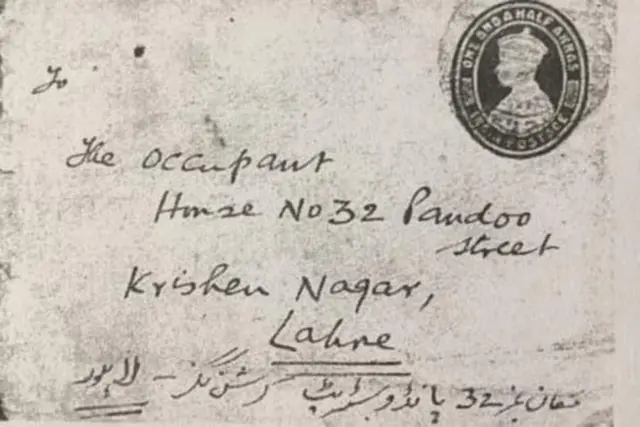 To
ONE AND A HALF ANNAS
INDIA POSTAGE
The Occupant
House No 32 Pandoo
street
Krishen Nagar,
Lahre
مکان نمبر 32 پانڈو سٹریٹ کرشن نگر - لاہور